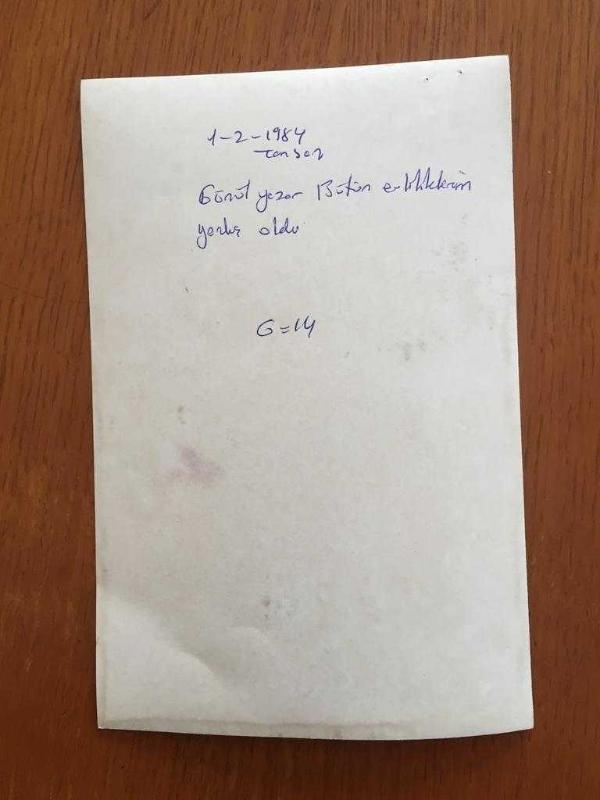 1-2-1984
Tansaş
Gönül yazar Bütün evliliklerim
yanlış oldu
G=14